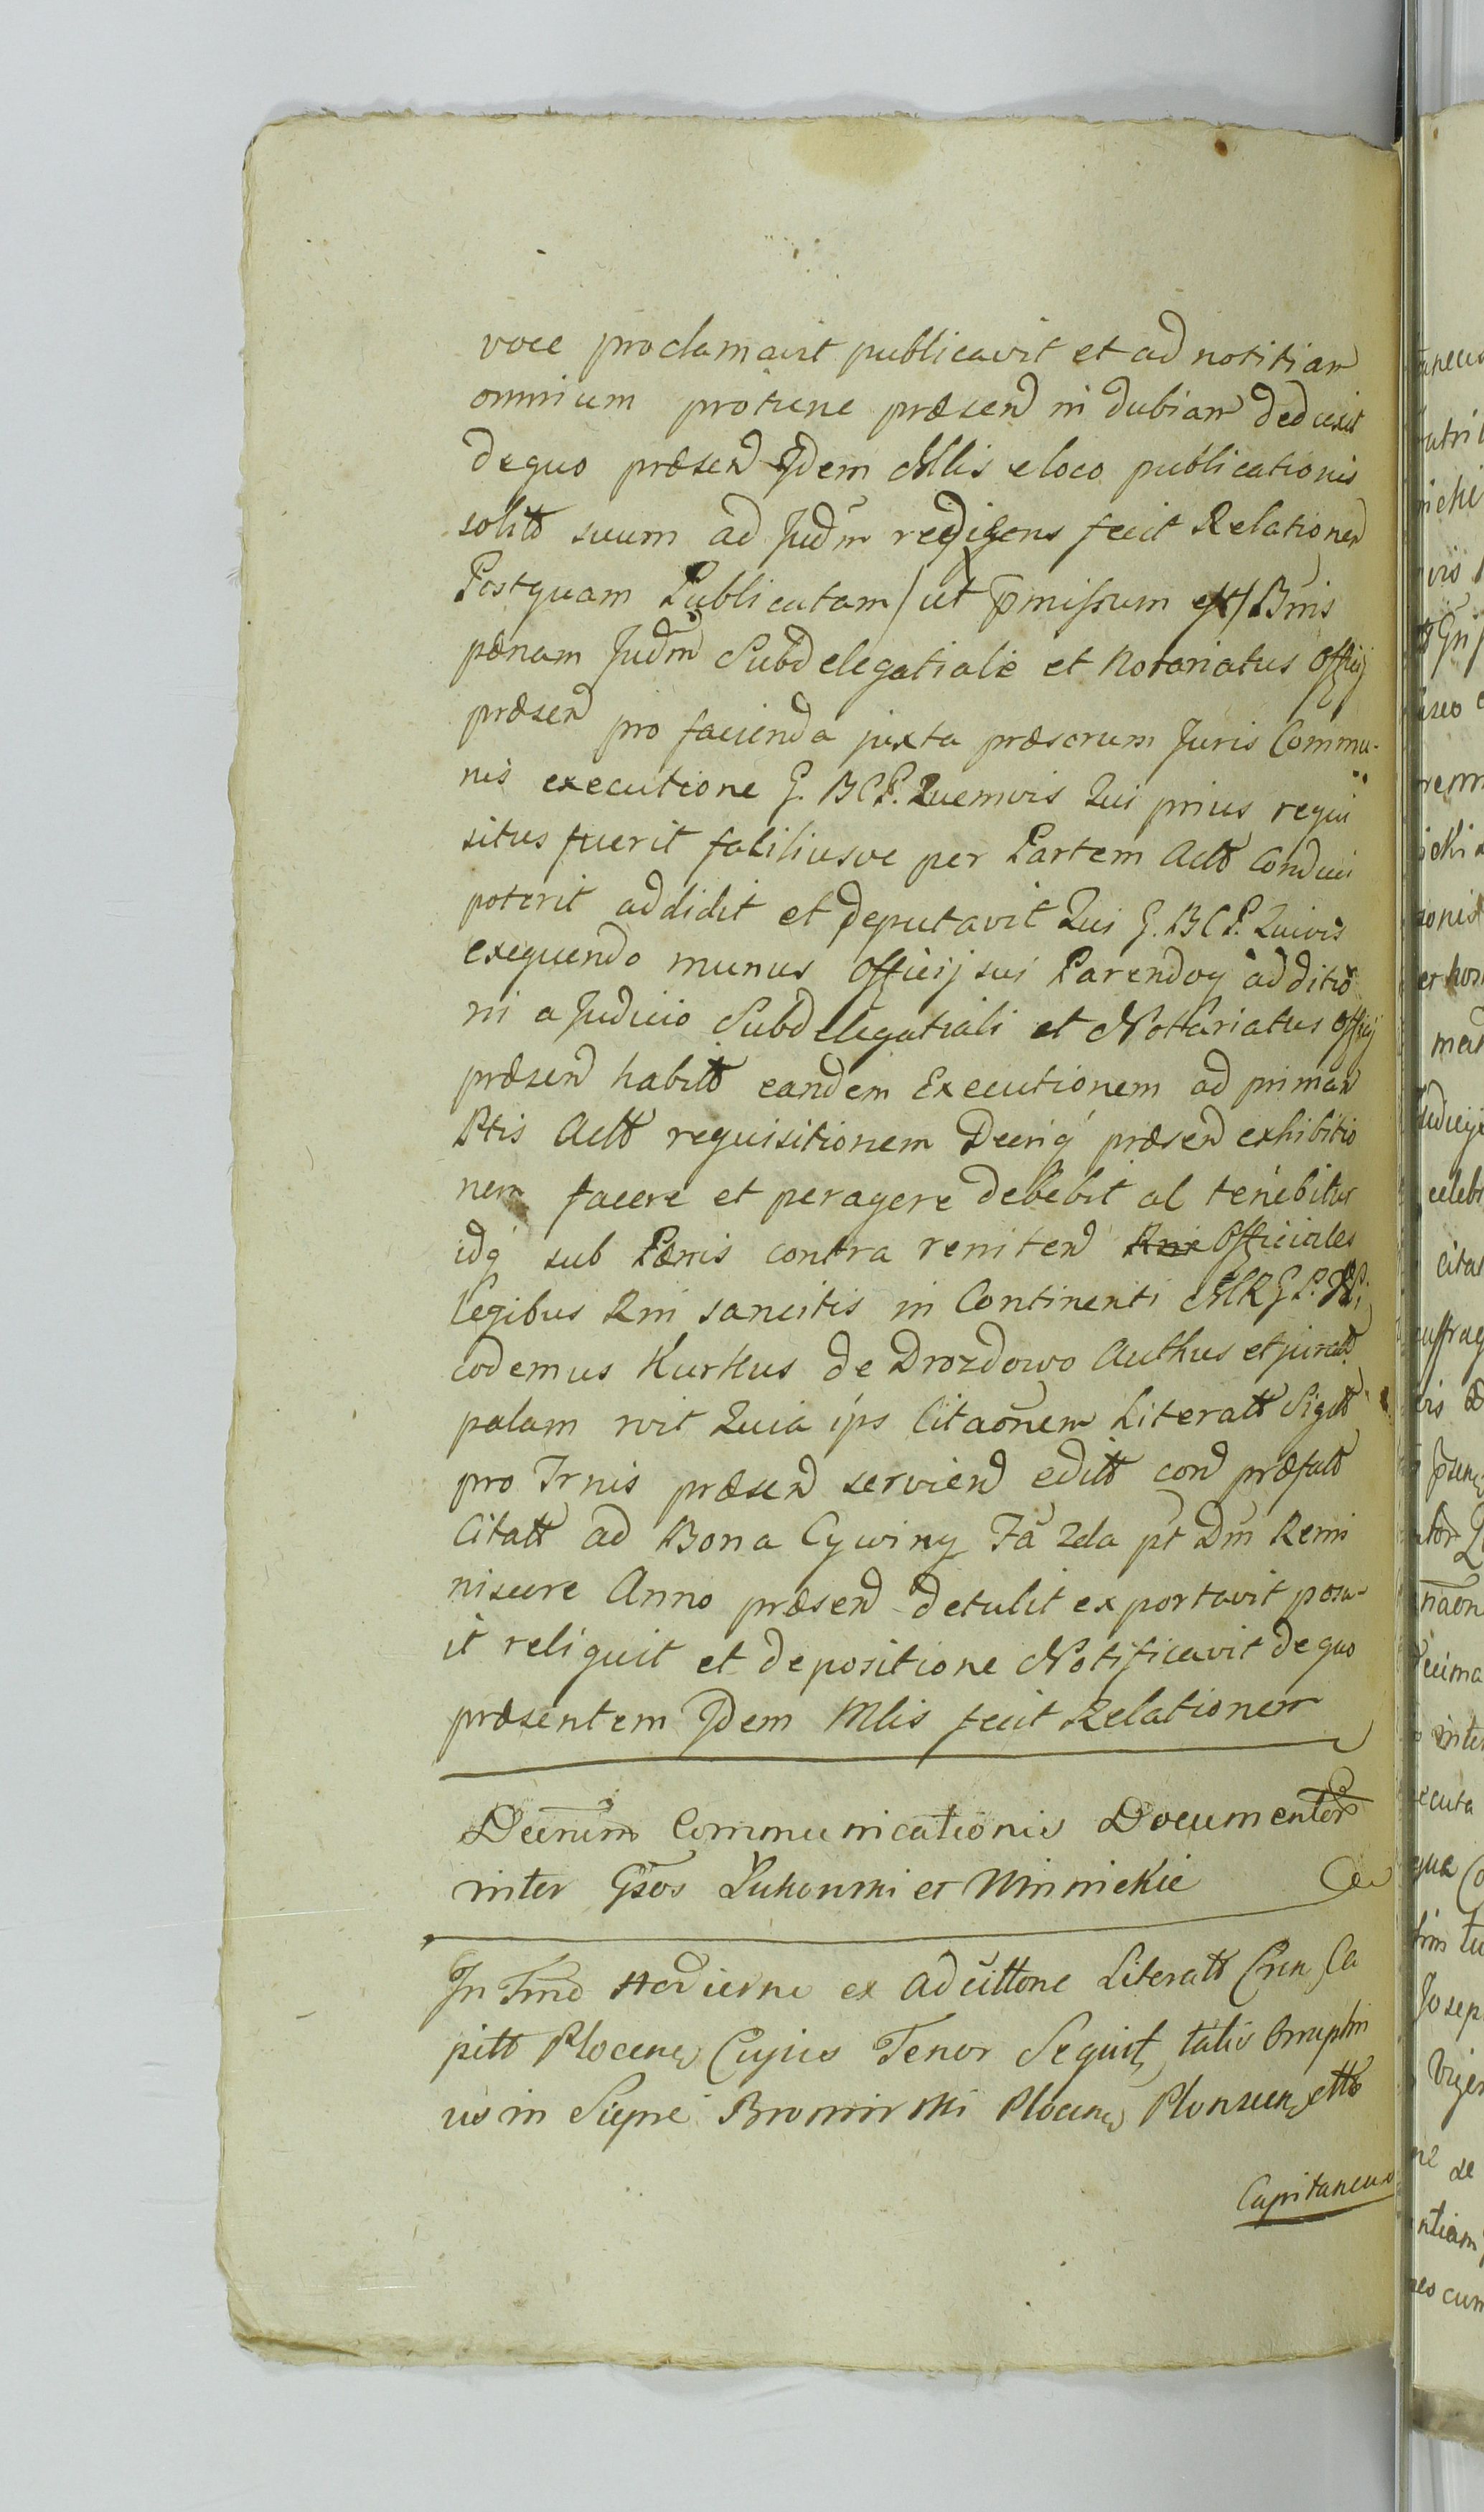 voce proclamavit publicavit et ad notitiam
omnium protunc præsen in dubiam deduxit
dequo præsen Idem Mlis eloco publicationis
solitt suum ad Judm redigens fecit Relationem
Postquam Publicatam / ut pmissum est / Bnis
pænam Judm Subdelegatiale et Notariatus Officij
præsen pro facienda juxta præscrum Juris Commu-
nis executione G. BCP. Quemvis Qui prius requi
situs fuerit faliliusve per Partem Actt Conduci
poterit addidit et deputavit Qui G. BCP. Quivis
exequendo munus Officij sui Parendoq additio
ni a Judicio Subdelegatiali et Nottariatus Officij
præsen habitt eandem Executionem ad primam
Ptis Actt requisitionem Decriq præsen exhibitio
nem facere et peragere debebit al tenebitur
idq sub Pænis contra reniten Officiales
legibus Rni sancitis in Continenti MRGP. Ni
codemus Kurkus de Drozdowo Authus et juratt
palam rvit Quia ips Citaonem Literatt Sigitt
pro Trnis præsen servien editt con præfatt
Citatt ad Bona Cywiny Fa 2da pt Dm Remi
niscere Anno præsen detulit exportavit posu-
it reliquit et depositione Notificavit de quo
præsentem Idem Mlis fecit Relationem
Decrum Communicationis Documentor
inter Gsos Łukowski et Winnickie
In Tmo Hodierno ex Adcittone Literatt Cen Ca
pitt Plocen Cujus Tenor Sequit talis
us in Siepre Bromirski Plocen Plonscen ett
Capitaneus